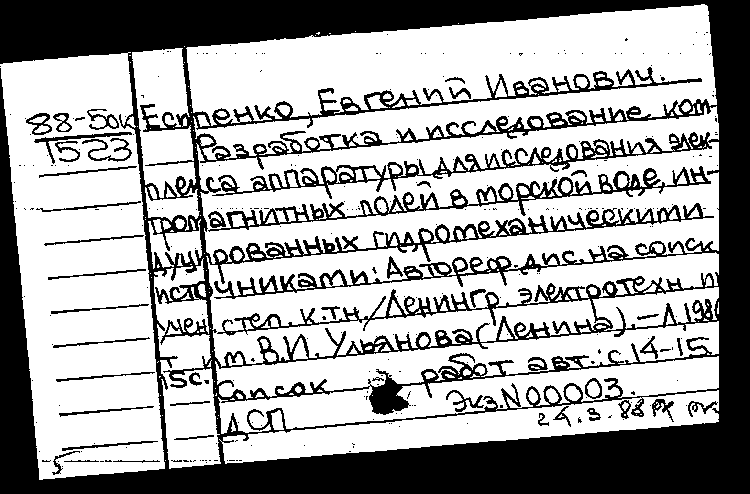 88-5ок
1523
Естпенко, Евгений Иванович.
Разработка и исследование ком-
плекса аппаратуры для исследования элек-
тромагнитных полей в морской воде, ин-
дуцированных гидромеханическими
источниками: Автореф. дис. на соиск
учен. степ. к.т.н. / Ленингр. электротехн. и
т им. В.И. Ульянова (Ленина). - Л., 198
15с.
Список работ авт.: с. 14-15
ДСП Экз. N 00003.
24.3.88
5